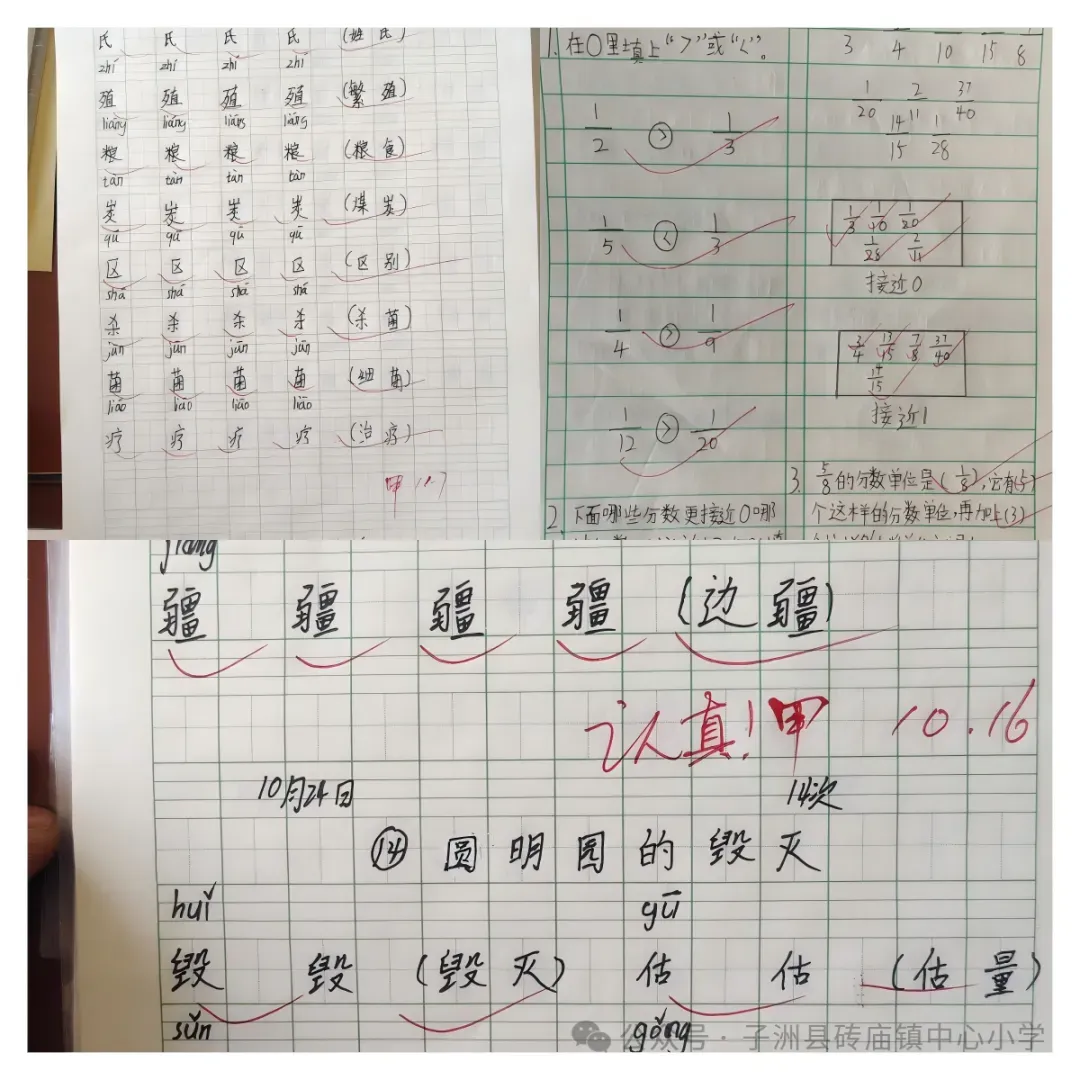 氏 氏 氏 氏 (姓氏)
zhí zhí zhí zhí
殖 殖 殖 殖 (繁殖)
liáng liáng liáng liáng
粮 粮 粮 粮 (粮食)
tàn tàn tàn tàn
炭 炭 炭 炭 (煤炭)
qū qū qū qū
区 区 区 区 (区别)
shā shā shā shā
杀 杀 杀 杀 (杀菌)
jūn jūn jūn jūn
菌 菌 菌 菌 (细菌)
liáo liáo liáo liáo
疗 疗 疗 疗 (治疗)
甲
1.在○里填上“>”或“<”。
1/2 > 1/3
1/5 < 1/3
1/4 > 1/9
1/12 > 1/20
2.下面哪些分数更接近0哪
3 4 10 15 8
1/20 2/11 37/40
14/15 1/28
1/3 1/10 1/20
1/28 2/11
接近0
3/4 13/15 7/8 37/40
14/15
接近1
3. 5/8的分数单位是(1/8),它有(5)
个这样的分数单位,再加上(3)
jiāng
疆 疆 疆 疆 (边疆)
认真!甲 10.16
10月24日 14次
⑭ 圆明园的毁灭
huǐ gū
毁 毁 (毁灭) 估 估 (估量)
sǔn gǒng
公众号·子洲县砖庙镇中心小学